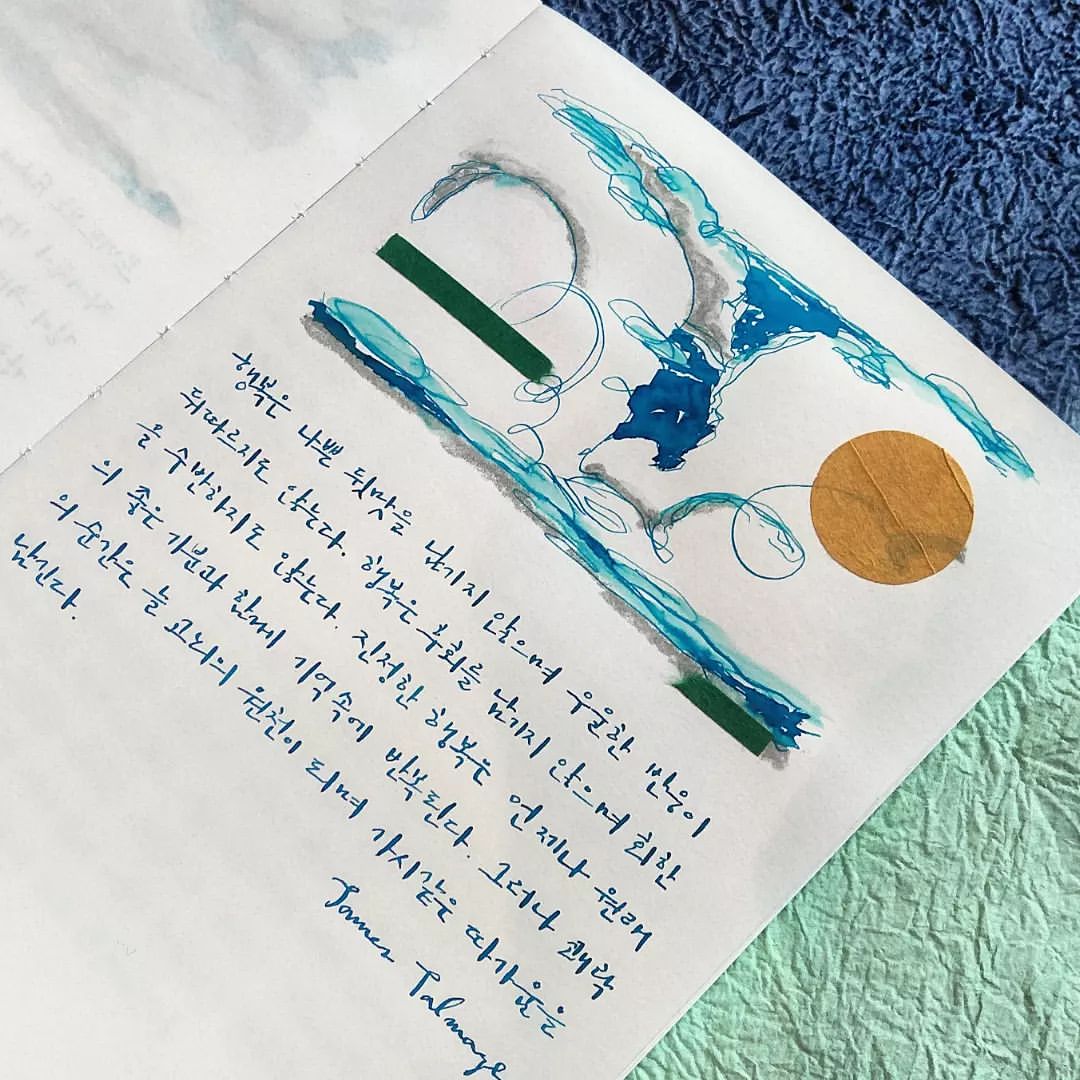 행복은 나쁜 뒷맛을 남기지 않으며 우울한 반응이
뒤따르지도 않는다. 행복은 후회를 남기지 않으며 회한
을 수반하지도 않는다. 진정한 행복은 언제나 원래
의 좋은 기분과 함께 기억속에 반복된다. 그러나 쾌락
의 순간은 늘 고뇌의 원천이 되며 가시같은 따가움을
남긴다.
James Talmage